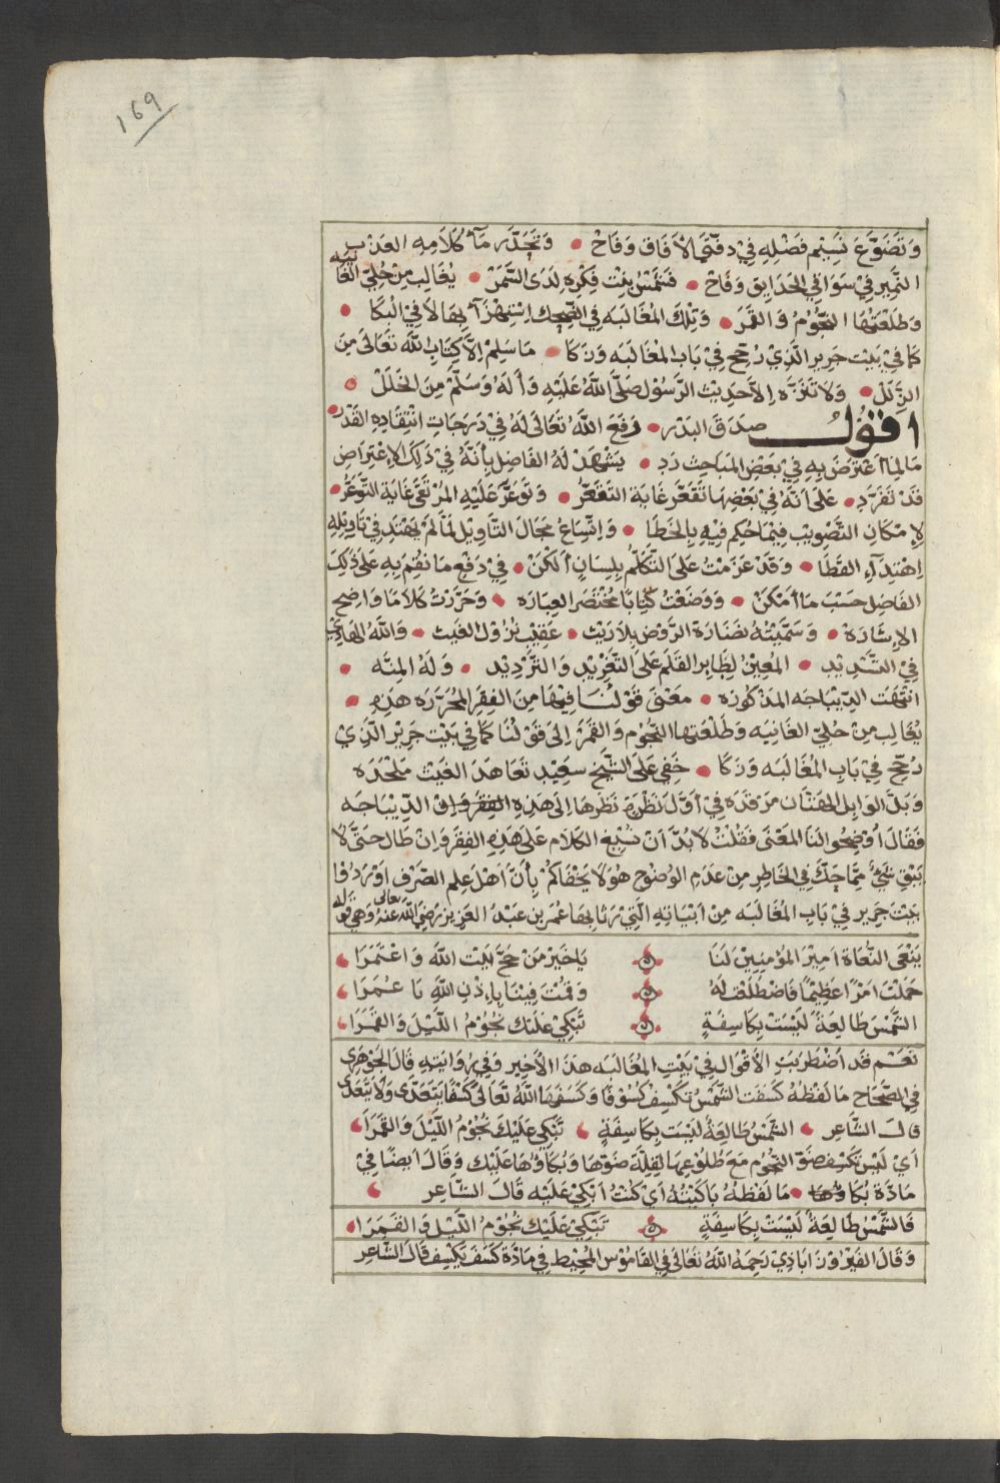 169
وَتَضَوَّعَ نَسِيْم فَضْلِهِ فِيْ دفّتَي الْآفَاق وَفَاحْ • وَتَحَدَّرَ مَآءُ كَلَامِهِ العَذْب
النَّمِير فِيْ سَوَاقِي الحَدَايِق وَفَاخْ • فَشَمْسُ بِنْت فِكْرِهِ لَدَى السَّمَرْ • يُغَالِب مِنْ حُلِيّ الغَانِيَه
وَطَلْعَتِهَا النُّجُوْمُ وَ القَمَرْ • وَتِلْكَ المُغَالَبَه فِي الضِّحِك اِسْتِهْزَآءً بِهَا لَا فِيْ البُكَا •
كَمَا فِيْ بَيْت جَرِيرِ الَّذِيْ رَجَّحَ فِيْ بَاب المُغَالَبَه وَزَكَا • مَا سَلِمَ اِلَّا كِتَابِ اللّٰه تَعَالَى مِنَ
الزَّلَلْ • وَلَا تَنَزَّه اِلَّا حَدِيْث الرَّسُوْل صَلَّى اللّٰهُ عَلَيْهِ وَاٰلهُ وَسَلَّمْ مِنَ الخَلَلْ
اقُوْلُ صَدَقَ البَدْر • رَفَعَ اللّٰهُ تَعَالَى لَهُ فِيْ دَرَجَاتِ اِنْتِقَادِهِ القَدْر •
مَا لِمَا اعْتَرَضَ بِهِ فِيْ بَعْضِ المَبَاحِث رَدّ • يَشْهَدُ لَهُ الفَاضِل بِأَنَّهُ فِيْ ذَلِكَ الاِعْتِرَاضِ
قَدْ تَفَرَّد • عَلَى اَنَّهُ فِيْ بَعْضِهَا تَقَعَّر غَايَة التَّقَعُّرْ • وَتَوَعَّرَ عَلَيْهِ المُرْتَقَى غَايَة التَّوَعُّرْ •
لِاِمْكَانِ التَّصْوِيْب فِيْمَا حُكِم فِيْهِ بِالخَطَا • وَاِتِّسَاعِ مَجَالِ التَّاوِيْل لِمَا لَمْ يَهْتَدِ فِيْ تَاوِيْلِهِ
اِهْتِدَآءِ القَطَا • وَقَدْ عَزَمْتُ عَلَى التَّكَلُّمِ بِلِسَانٍ اَلْكَنْ • فِيْ دَفْعِ مَا نُقِمَ بِهِ عَلَى ذَلِكَ
الفَاضِل حَسَبَ مَا اَمْكَنْ • وَوَضَعْتُ كِتَابًا مُخْتَصَرَ العِبَارَه • وَحَرَّرْتُ كَلَامًا وَاضِح
الاِشَارَة • وَسَمَّيْتُهُ نَضَارَة الرَّوْض بِلَا رَيْث • عَقِيْب نُزُوْل الغَيْث • وَاللّٰهُ الهَادِيْ
فِيْ التَّسْدِيْد • المُعِيْنُ لِطَايِر القَلَم عَلَى التَّغْرِيْد وَالتَّرْدِيْد • وَلَهُ المِنَّه •
انْتَهَت الدِّيْبَاجَه المَذكُوْرَه • مَعْنَى قَوْلُنَا فِيْهَا مِنَ الفِقَر المُحَرَّرَه هَذِهِ •
يُغَالِب مِنْ حُلِيّ الغَانِيَه وَطَلْعَتِهَا النُّجُوْم وَالقَمَرْ اِلَى قَوْلُنَا كَمَا فِي بَيْت جَرِيْر الَّذِيْ
رَجَّحَ فِيْ بَاب المُغَالَبَه وَزَكَا • خَفِيَ عَلَى الشَّيْخ سَعِيْد تَعَاهَدَ الغَيْث مَلْحَدَه
وَبَلَّ الوَابِل الهَتَّان مَرْقَدَه فِيْ اَوَّل نَظْرَةٍ نَظَرَهَا اِلَى هَذِهِ الفِقَر وَاِلَى الدِّيْبَاجَه
فَقَالَ اُوْضِحُوا لَنَا المَعْنَى فَقُلْتُ لَا بُدَّ اَنْ نُشْبِعَ الكَلَام عَلَى هَذِهِ الفِقَر وَاِنْ طَالَ حَتَّى لَا
يَبْقَى شَيْءٌ مِمَّا حَكَّ فِي الخَاطِر مِنْ عَدَمِ الوُضُوْح هُوَ لَا يَخْفَاكُمْ بِأَنَّ اَهْلَ عِلْم الصَّرْف اَوْرَدُوْا
بَيْتَ جَرِير فِيْ بَاب المُغَالَبَه مِنْ اَبْيَاتِهِ الَّتِيْ رَثَا بِهَا عُمَر بن عَبْدُ العَزِيز رَضِيَ اللّٰهُ تعالى عَنْهُ وَهِيَ قوله
يَنْعَى النُّعَاة اَمِيْرَ المُؤْمِنِيْنَ لَنَا يَاخَيْرَ مَنْ حَجَّ بَيْتَ اللّٰهِ وَاعْتَمَرَا
حَمَلْتَ اَمْرًا عَظِيْمًا فَاضْطَلَعْتَ لَهُ وَقُمْتَ فِيْنَا بِاِذْنِ اللّٰهِ يَا عُمَرَا
الشَّمْسَ طَالِعَةٌ لَيْسَتْ بِكَاسِفَةٍ تَبْكِيْ عَلَيْكَ نُجُوْمُ اللَّيْلِ وَالقَمَرَا
نَعَمْ قَد اضْطَرَبَتِ الأَقْوَال فِيْ بَيْتِ المُغَالَبَه هَذَا الأَخِير وَفِيْ رِوَايَتِهِ قَالَ الجَوْهَرِي
فِي الصِّحَاح مَا لَفْظهُ كَسَفَت الشَّمْسُ تَكْسِفُ كُسُوْفًا وَكَسَفَهَا اللّٰهُ تَعَالَى كَسْفًا يَتَعَدَّى وَلَا يَتَعَدَّى
قَالَ الشَّاعِر الشَّمْسُ طَالِعَةٌ لَيْسَتْ بِكَاسِفَةٍ تَبْكِي عَلَيْكَ نُجُوْمُ اللَّيْلَ وَالقَمَرَا
اَيْ لَيْسَ تَكْسِفُ ضَوْءَ النُّجُوْم مَعَ طُلُوْعِهَا لِقِلَّة ضَوْئِهَا وَبُكَاؤُهَا عَلَيْك وَقَالَ اَيْضًا فِيْ
مَادَّة بُكَاؤُهَا • مَا لَفْظهُ بَاكَيْتُهُ اَيْ كُنْتُ اَبْكِيْ عَلَيْه قَالَ الشَّاعِر
فَالشَّمْسُ طَالِعَةٌ لَيْسَتْ بِكَاسِفَةٍ تَبْكِيْ عَلَيْكَ نُجُوْمُ اللَّيْلَ وَالقَمَرَا
وَقَالَ الفَيْرُوْزَابَادِيْ رَحِمَهُ اللّٰهُ تَعَالَى فِي القَامُوْسِ المُحِيْط فِي مَادَّة كَسَفَ يَكْسِف قَالَ الشَّاعِر